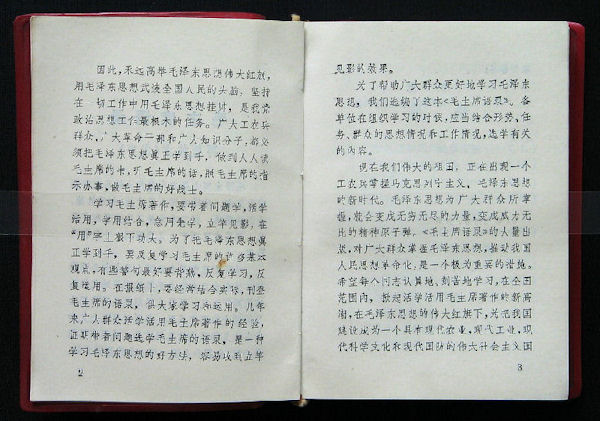 因此,永远高举毛泽东思想伟大红旗,
用毛泽东思想武装全国人民的头脑,坚持
在一切工作中用毛泽东思想挂帅,是我党
政治思想工作最根本的任务。广大工农兵
群众、广大革命干部和广大知识分子,都必
须把毛泽东思想真正学到手,做到人人读
毛主席的书,听毛主席的话,照毛主席的指
示办事,做毛主席的好战士。
学习毛主席著作,要带着问题学,活学
活用,学用结合,急用先学,立竿见影,在
“用”字上狠下功夫。为了把毛泽东思想真
正学到手,要反复学习毛主席的许多基本
观点,有些警句最好要背熟,反复学习,反
复运用。在报纸上,要经常结合实际,刊登
毛主席的语录,供大家学习和运用。几年
来广大群众活学活用毛主席著作的经验,
证明带着问题选学毛主席的语录,是一种
学习毛泽东思想的好方法,容易收到立竿
2
见影的效果。
为了帮助广大群众更好地学习毛泽东
思想,我们选编了这本《毛主席语录》。各
单位在组织学习的时候,应当结合形势、任
务、群众的思想情况和工作情况,选学有关
的内容。
现在我们伟大的祖国,正在出现一个
工农兵掌握马克思列宁主义、毛泽东思想
的新时代。毛泽东思想为广大群众所掌
握,就会变成无穷无尽的力量,变成威力无
比的精神原子弹。《毛主席语录》的大量出
版,对广大群众掌握毛泽东思想,推动我国
人民思想革命化,是一个极为重要的措施。
希望每个同志认真地、刻苦地学习,在全国
范围内,掀起活学活用毛主席著作的新高
潮,在毛泽东思想的伟大红旗下,为把我国
建设成为一个具有现代农业、现代工业、现
代科学文化和现代国防的伟大社会主义国
3